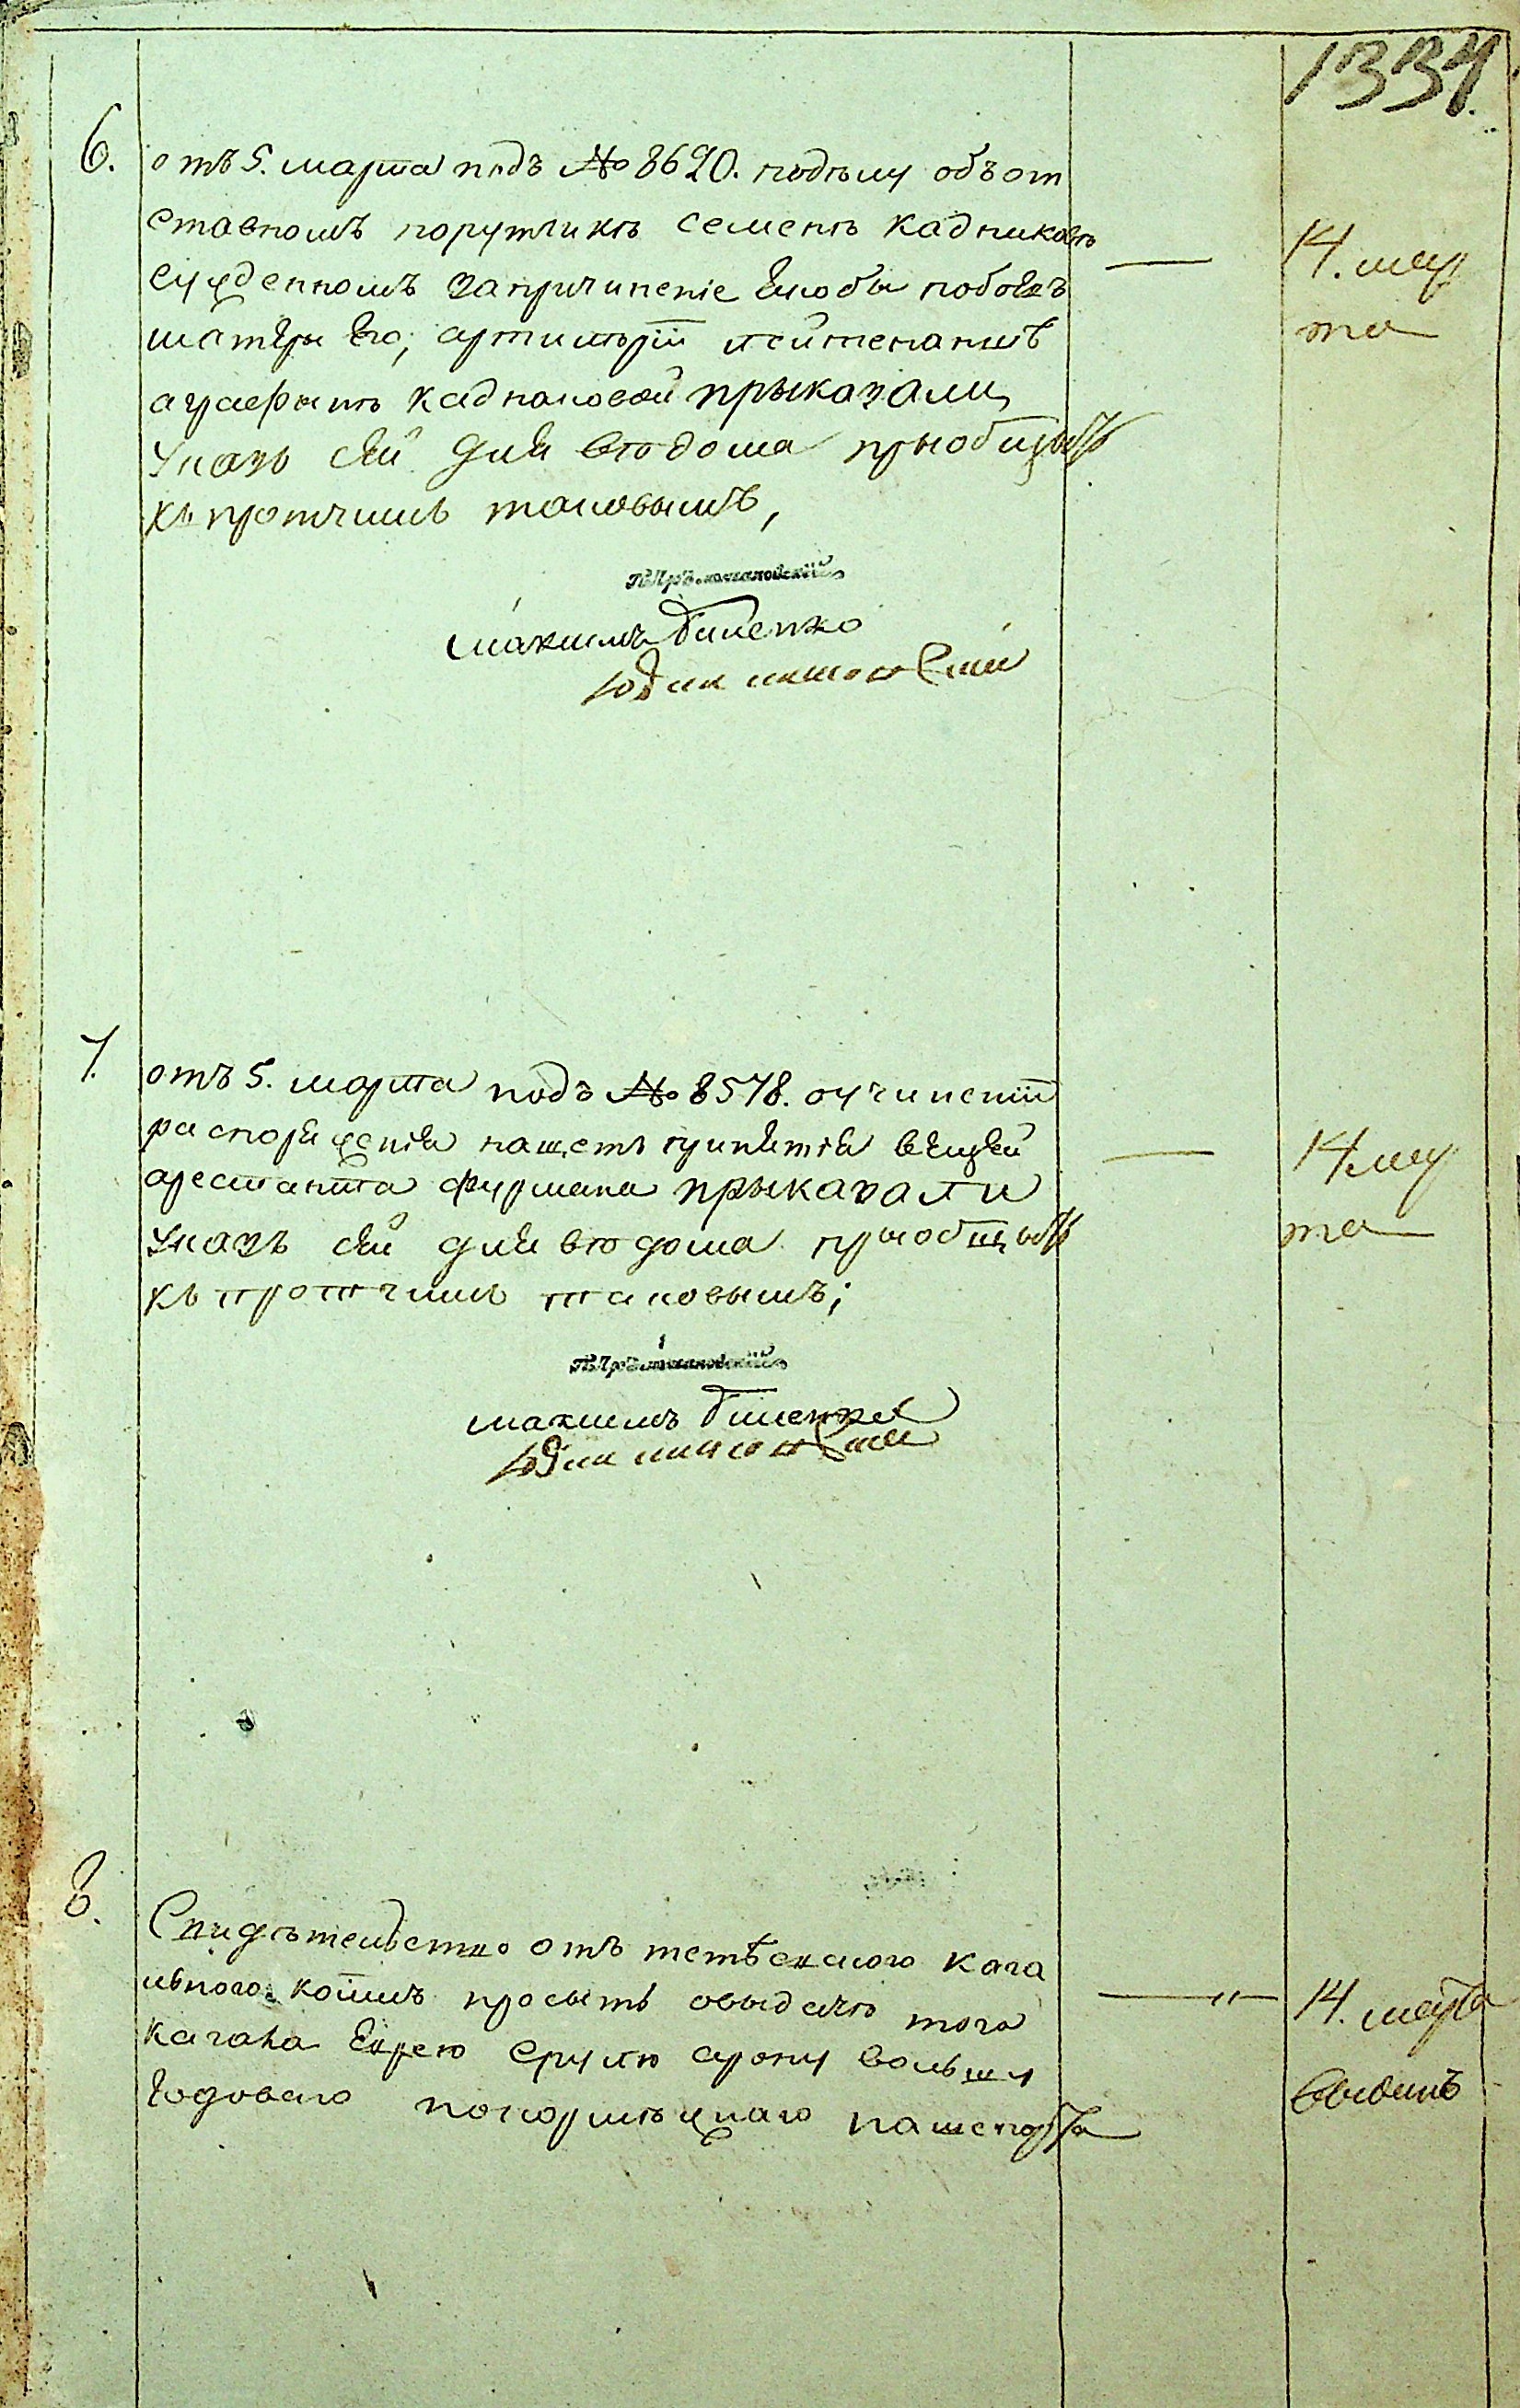 1334.
6. отъ 5. марта подъ № 8620. подѣлу объ от
ставномъ порутчикѣ семенѣ кадниковѣ
сужденномъ запричиненіе якобы побоевъ
матери его, артилеріи лейтенантшѣ
аграфынѣ кадналовой прыказали,
указъ сей для вѣдома пріобщыть
къ протчимъ таковымъ,
14. мар
та
максимъ Биленко
7. отъ 5. марта подъ № 8578. оучиненіи
распоряженія нащетъ принятія вещей
арестанта фурмана прыказали
указъ сей для вѣдома пріобщыть
къ протчимъ таковымъ;
14 мар
та
максимъ Биленко
8. Свидѣтельство отъ тетѣевского кага
льного коимъ просытъ овыдачѣ того
кагала Еврею Срулю арону вольшу
годоваго покормѣжнаго пашепорта
14. марта
выданъ